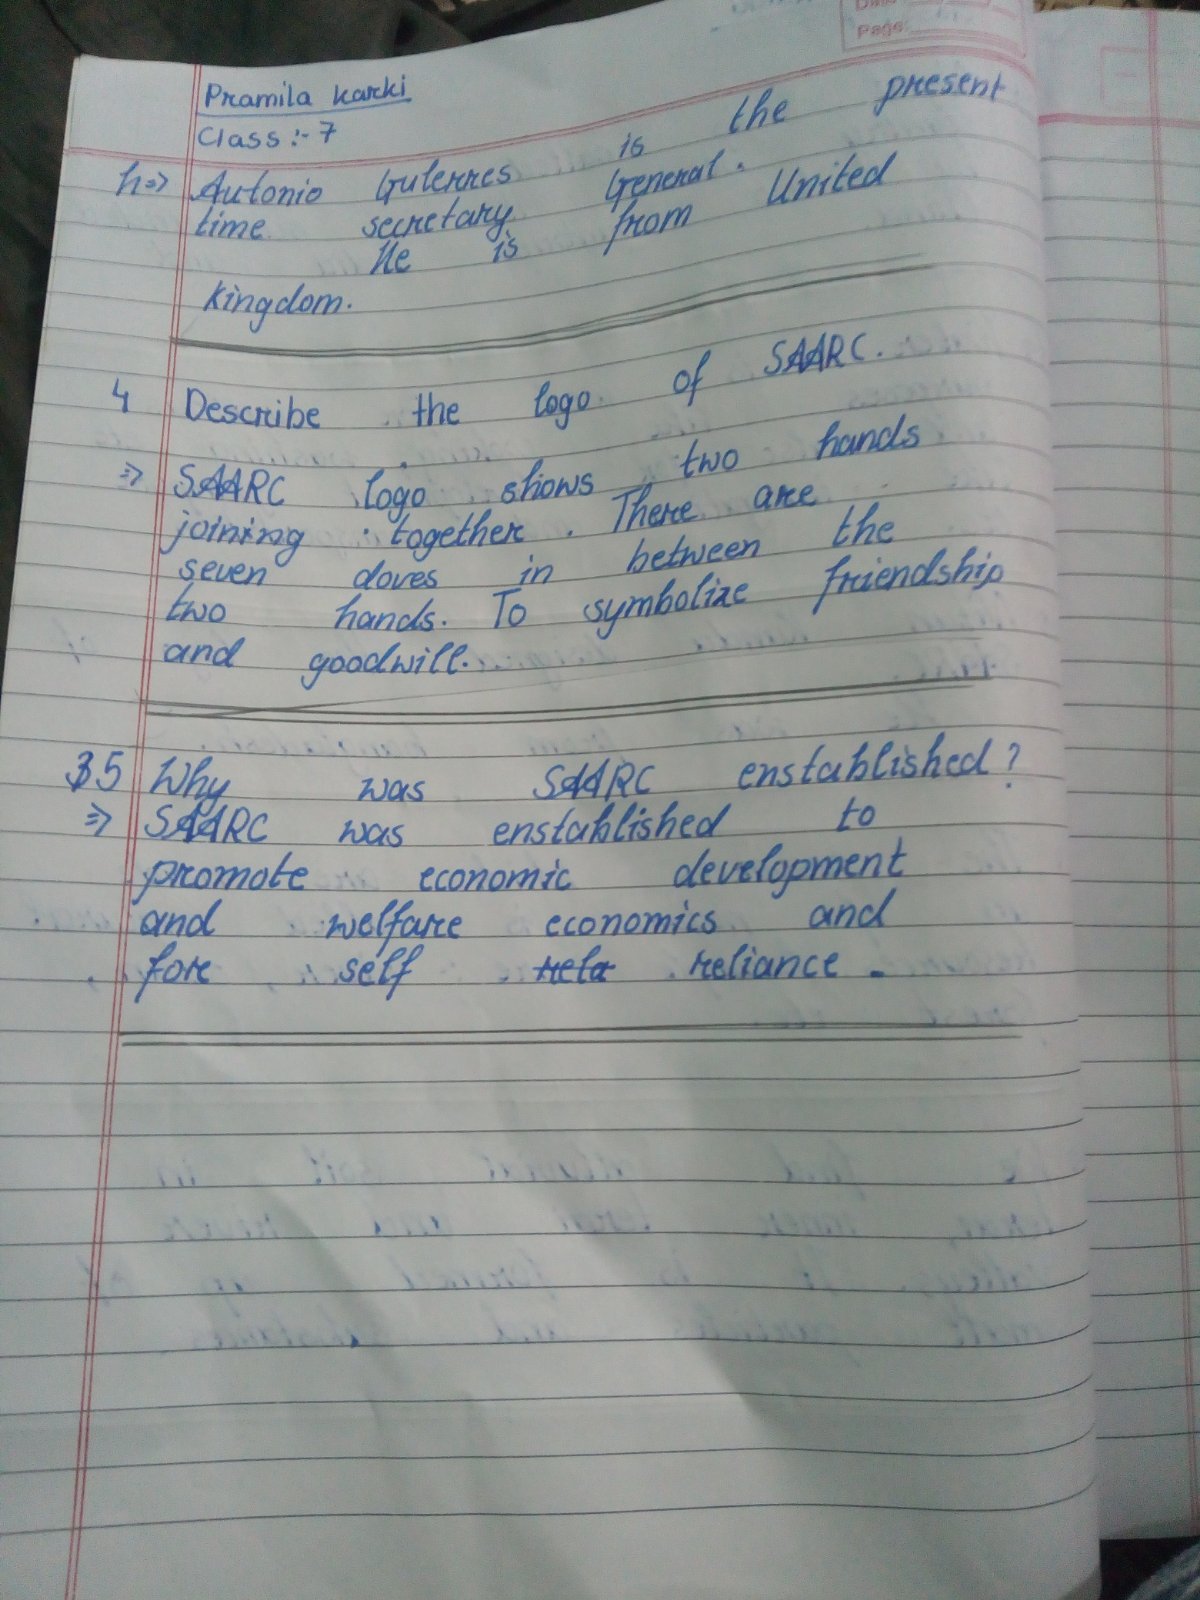 Page:
Pramila Karki
Class :- 7
h=> Autonio Guterres is the present
time secretary General.
He is from United
Kingdom.
4 Describe the logo of SAARC.
=> SAARC logo shows two hands
joining together. There are
seven doves in between the
two hands. To symbolize friendship
and goodwill.
5 Why was SAARC enstablished?
=> SAARC was enstablished to
promote economic development
and welfare economics and
fore self rela reliance.